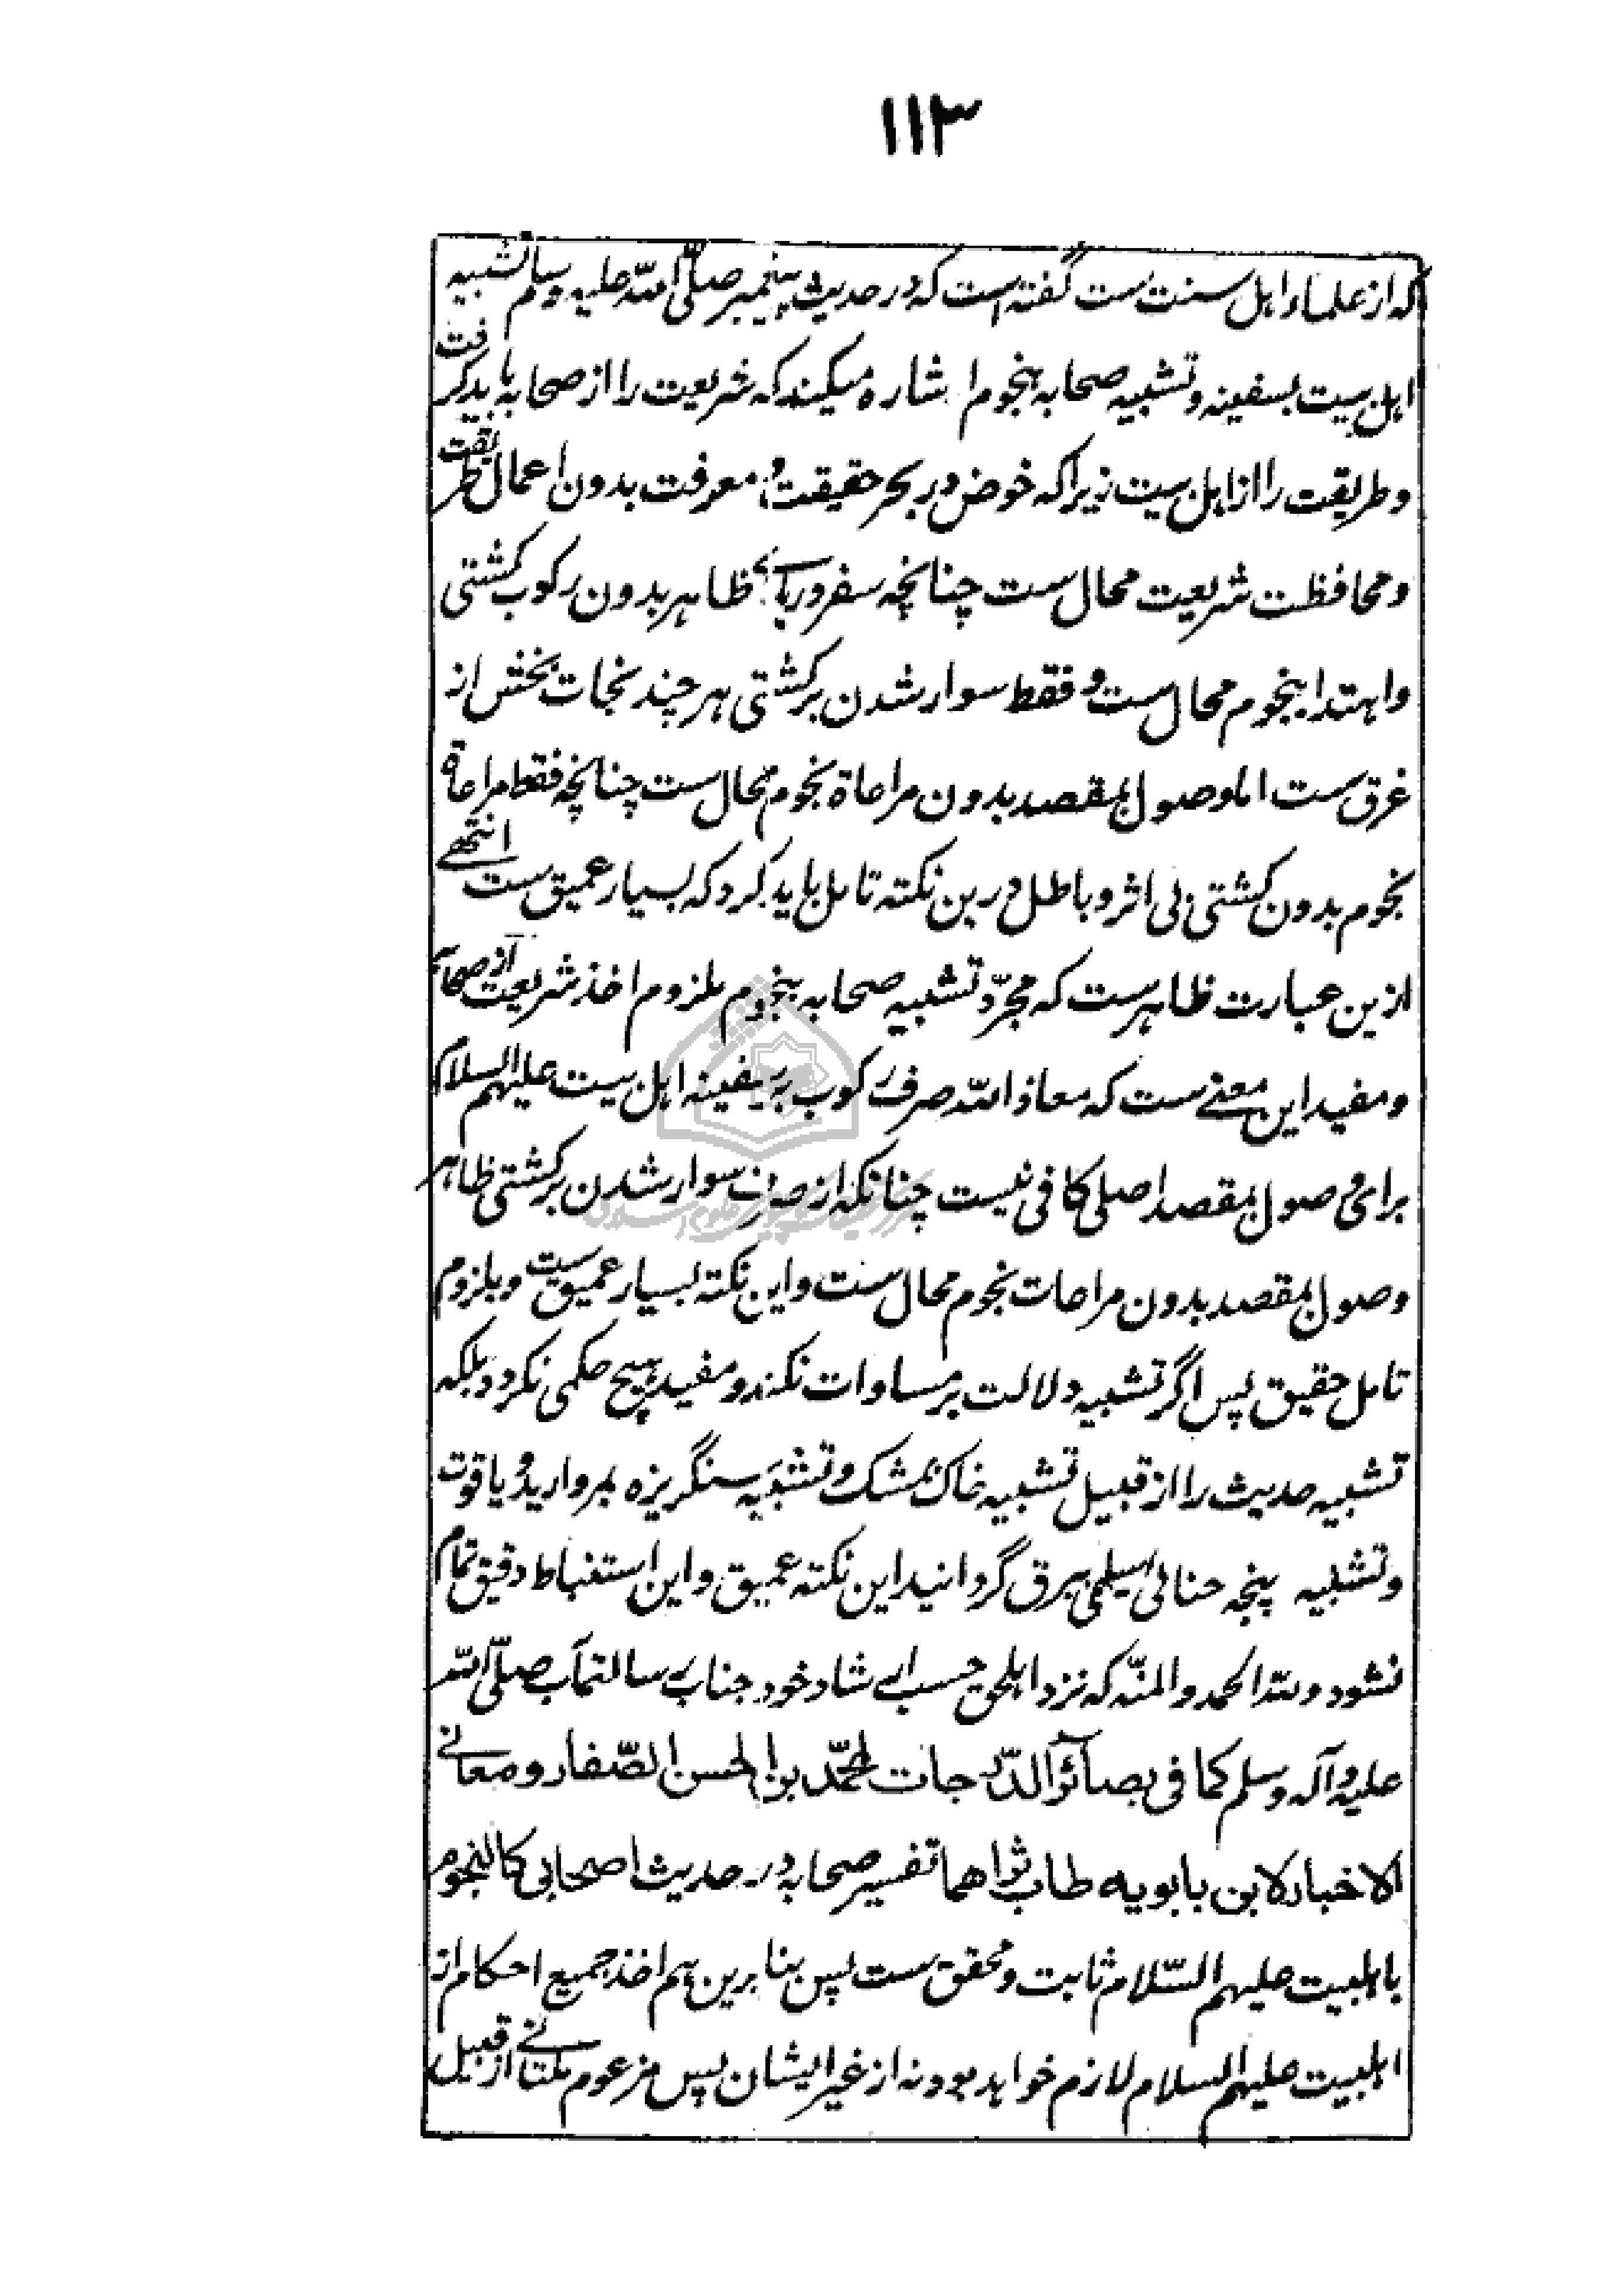 ۱۱۳
که از علماء اهل سنت ست گفته است که در حدیث پیغمبر صلّی الله علیه وسلم تشبیه
اهل بیت بسفینه و تشبیه صحابه بنجوم اشاره میکند که شریعت را از صحابه باید گرفت
و طریقت را از اهل بیت زیرا که خوض در بحر حقیقت و معرفت بدون اعمال طریقت
و محافظت شریعت محال ست چنانچه سفر دریای ظاهر بدون رکوب کشتی
و اهتدا بنجوم محال ست و فقط سوار شدن بر کشتی هر چند نجات بخش از
غرق ست اما وصول بمقصد بدون مراعاة نجوم محال ست چنانچه فقط مراعاة
نجوم بدون کشتی بی اثر و باطل درین نکته تامل باید کرد که بسیار عمیق ست انتهے
ازین عبارت ظاهر ست که مجرّد تشبیه صحابه بنجوم ملزوم اخذ شریعت از صحابه
و مفید این معنے ست که معاذ الله صرف رکوب بر سفینه اهل بیت علیهم السلام
برای وصول بمقصد اصلی کافی نیست چنانکه از صرف سوار شدن بر کشتی ظاهر
وصول بمقصد بدون مراعات نجوم محال ست و این نکته بسیار عمیق ست و بلزوم
تامل حقیق پس اگر تشبیه دلالت بر مساوات نکند و مفید هیچ حکمی نگردد بلکه
تشبیه حدیث را از قبیل تشبیه خاک بمشک و تشبیه سنگریزه بمروارید و یاقوت
و تشبیه پنجه حنائی سلمی ببرق گردانید این نکته عمیق و این استنباط دقیق تمام
نشود و لله الحمد والمنّه که نزد اهلحق حسب ارشاد خود جناب رسالتمآب صلّی الله
علیه وآله وسلم کما فی بصائر الدّرجات لمحمّد بن الحسن الصّفار و معانے
الاخبار لابن بابویه طاب ثراهما تفسیر صحابه در حدیث اصحابی کالنجوم
باهلبیت علیهم السّلام ثابت و محقق ست پس بنابرین هم اخذ جمیع احکام از
اهلبیت علیهم السلام لازم خواهد بود نه از غیر ایشان پس مزعوم ملتانے از قبیل